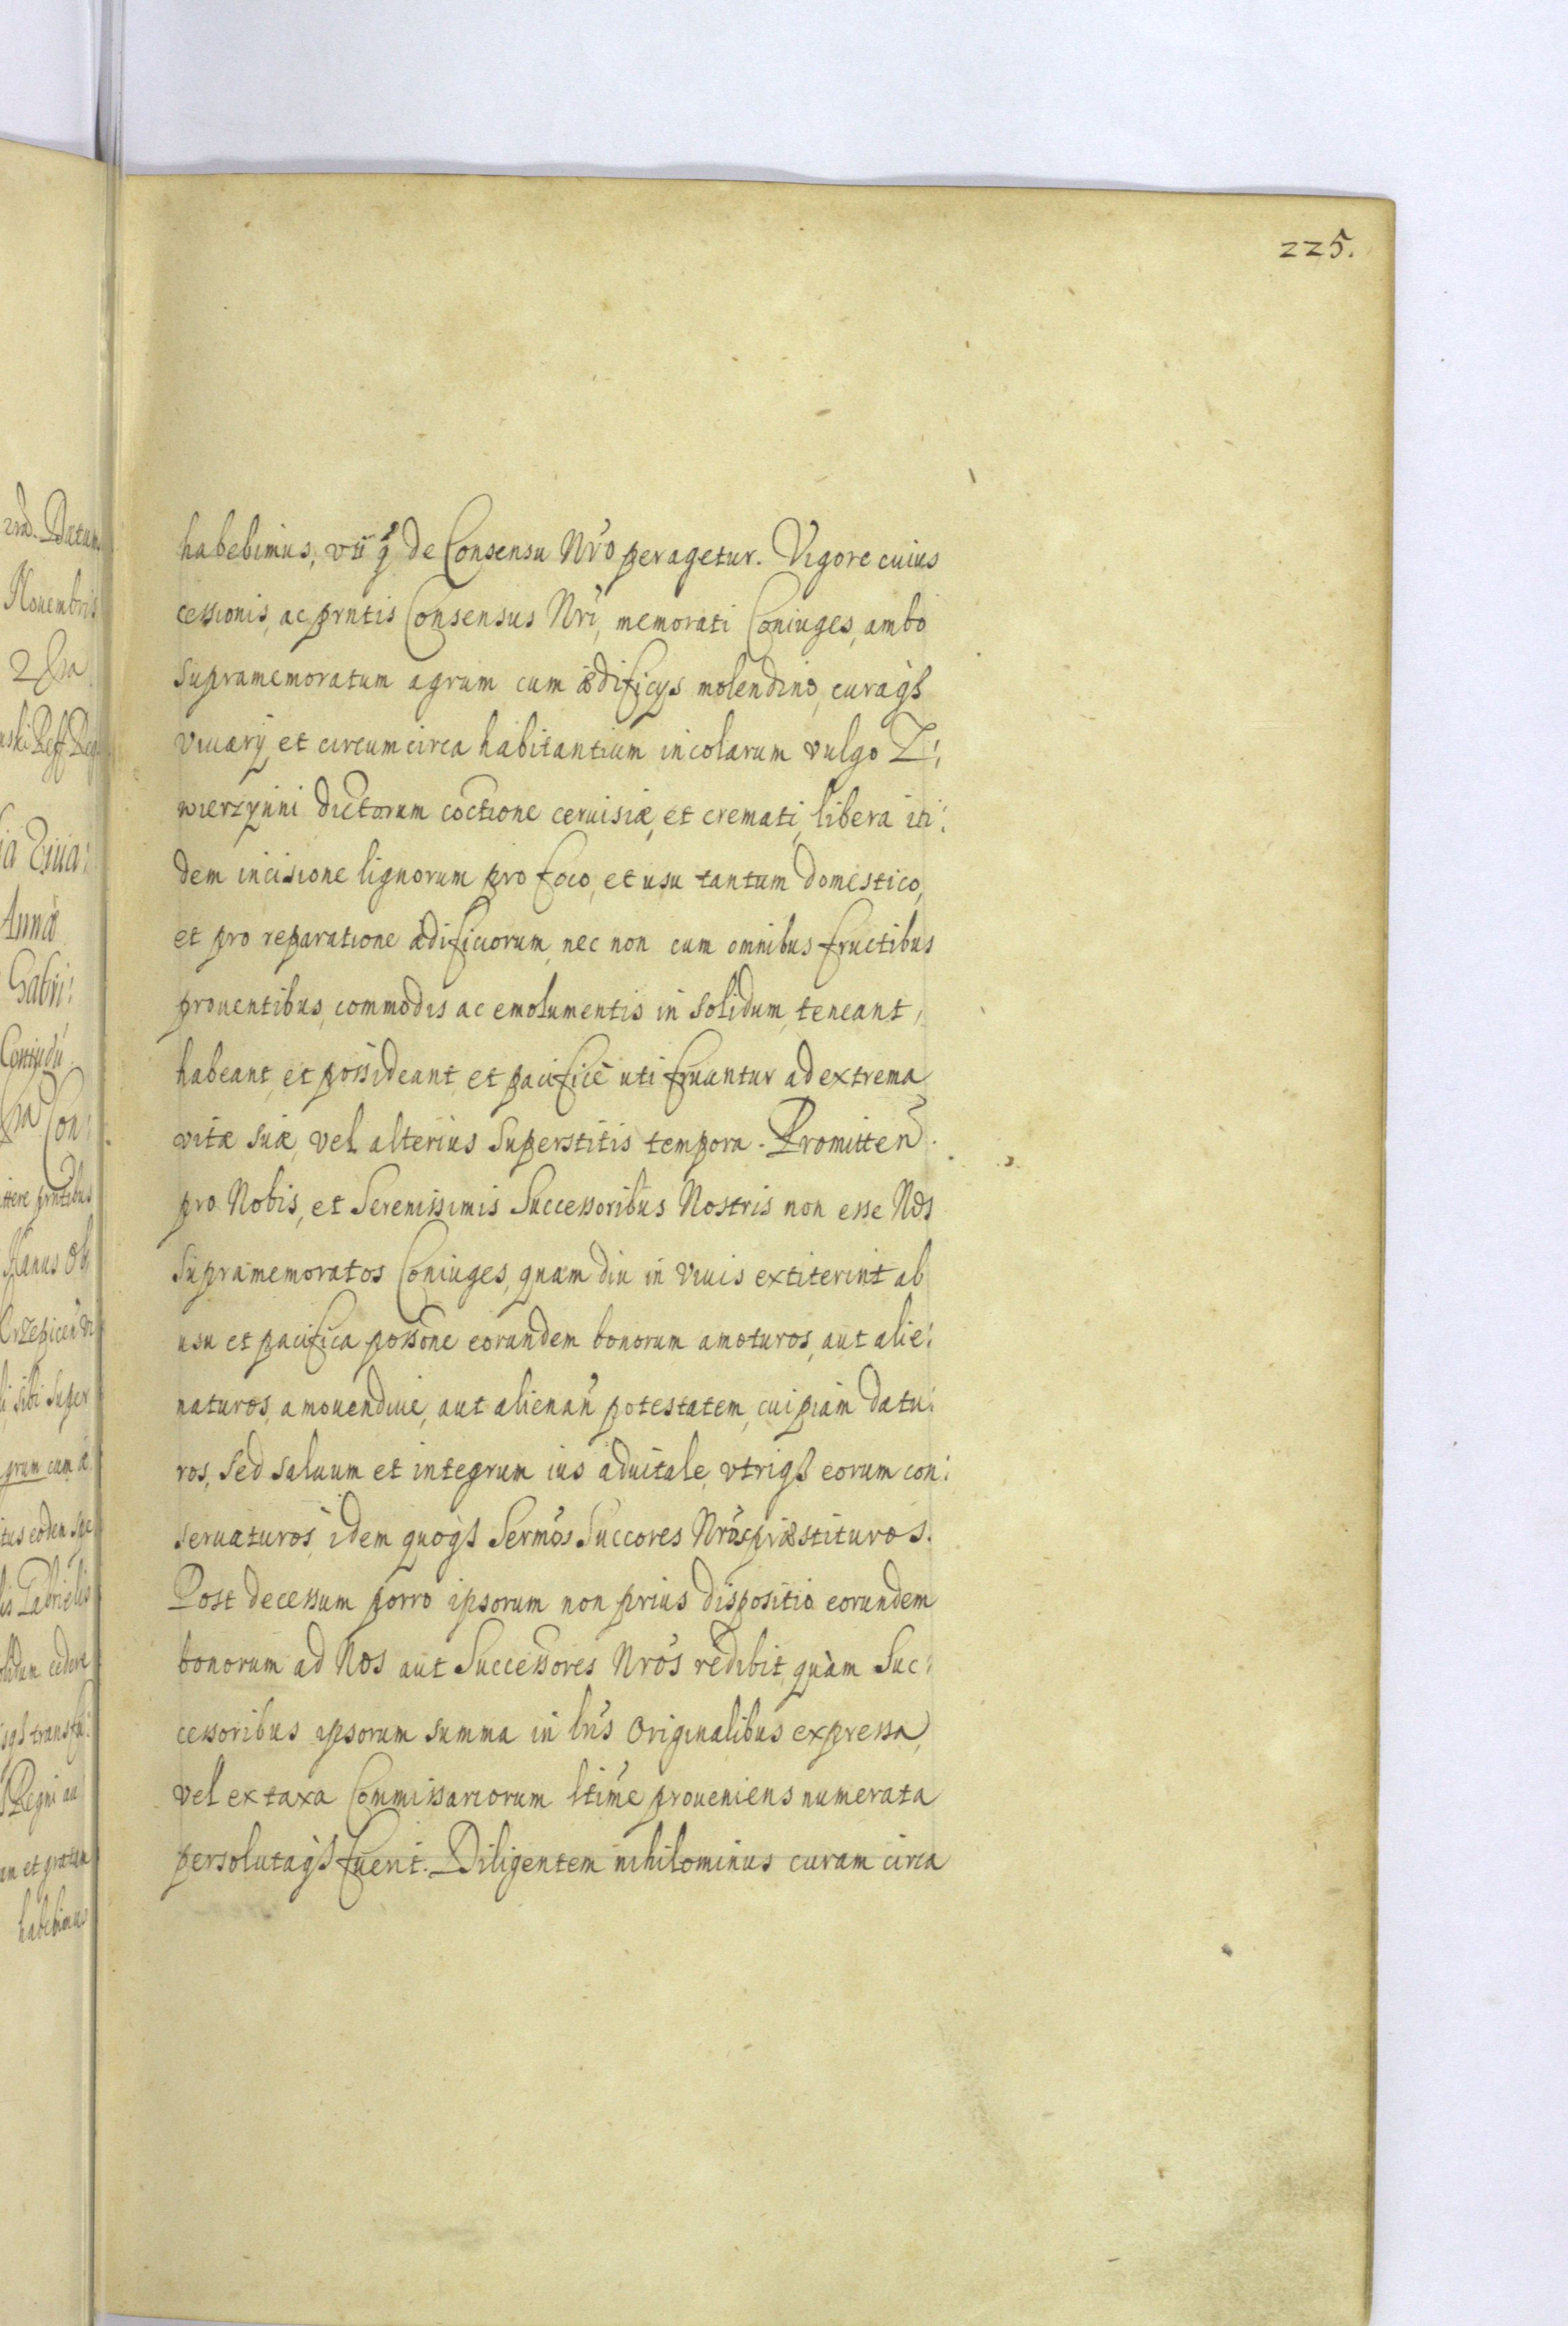 225.
habebimus, uti q̃ de Consensu Nr̃o peragetur. Vigore cuius
cessionis, ac pr̃ntis Consensus Nr̃i, memorati Coniuges, ambo
supramemoratum agrum cum ædificys molendino, curaq̃s
viuarÿ et circumcirca habitantium incolarum vulgo Z:
wierzynni dictorum coctione ceruisiæ, et cremati, libera iti:
dem incisione lignorum pro foco, et usu tantum domestico,
et pro reparatione ædificiorum, nec non cum omnibus fructibus
prouentibus, commodis ac emolumentis in solidum, teneant,
habeant, et possideant, et pacificè uti fruantur ad extrema
vitæ suæ, vel alterius superstitis tempora. Promitteñ.
pro Nobis, et Serenissimis Successoribus Nostris non esse Nos
supramemoratos Coniuges, quam diu in viuis extiterint ab
usu et pacifica possõne eorundem bonorum amoturos, aut alie:
naturos, amouendiue, aut alienañ potestatem, cuipiam datu:
ros, sed saluum et integrum ius aduitale, vtriq̃s eorum con:
seruaturos, idem quoq̃s Serm̃os Succores Nr̃os præstituros.
Post decessum porro ipsorum non prius dispositio eorundem
bonorum ad Nos aut Successores Nr̃os redibit, quàm Suc:
cessoribus ipsorum summa in lr̃is Originalibus expressa,
vel ex taxa Commissariorum ltim̃e proueniens numerata
persolutaq̃s fuerit. Diligentem nihilominus curam circa